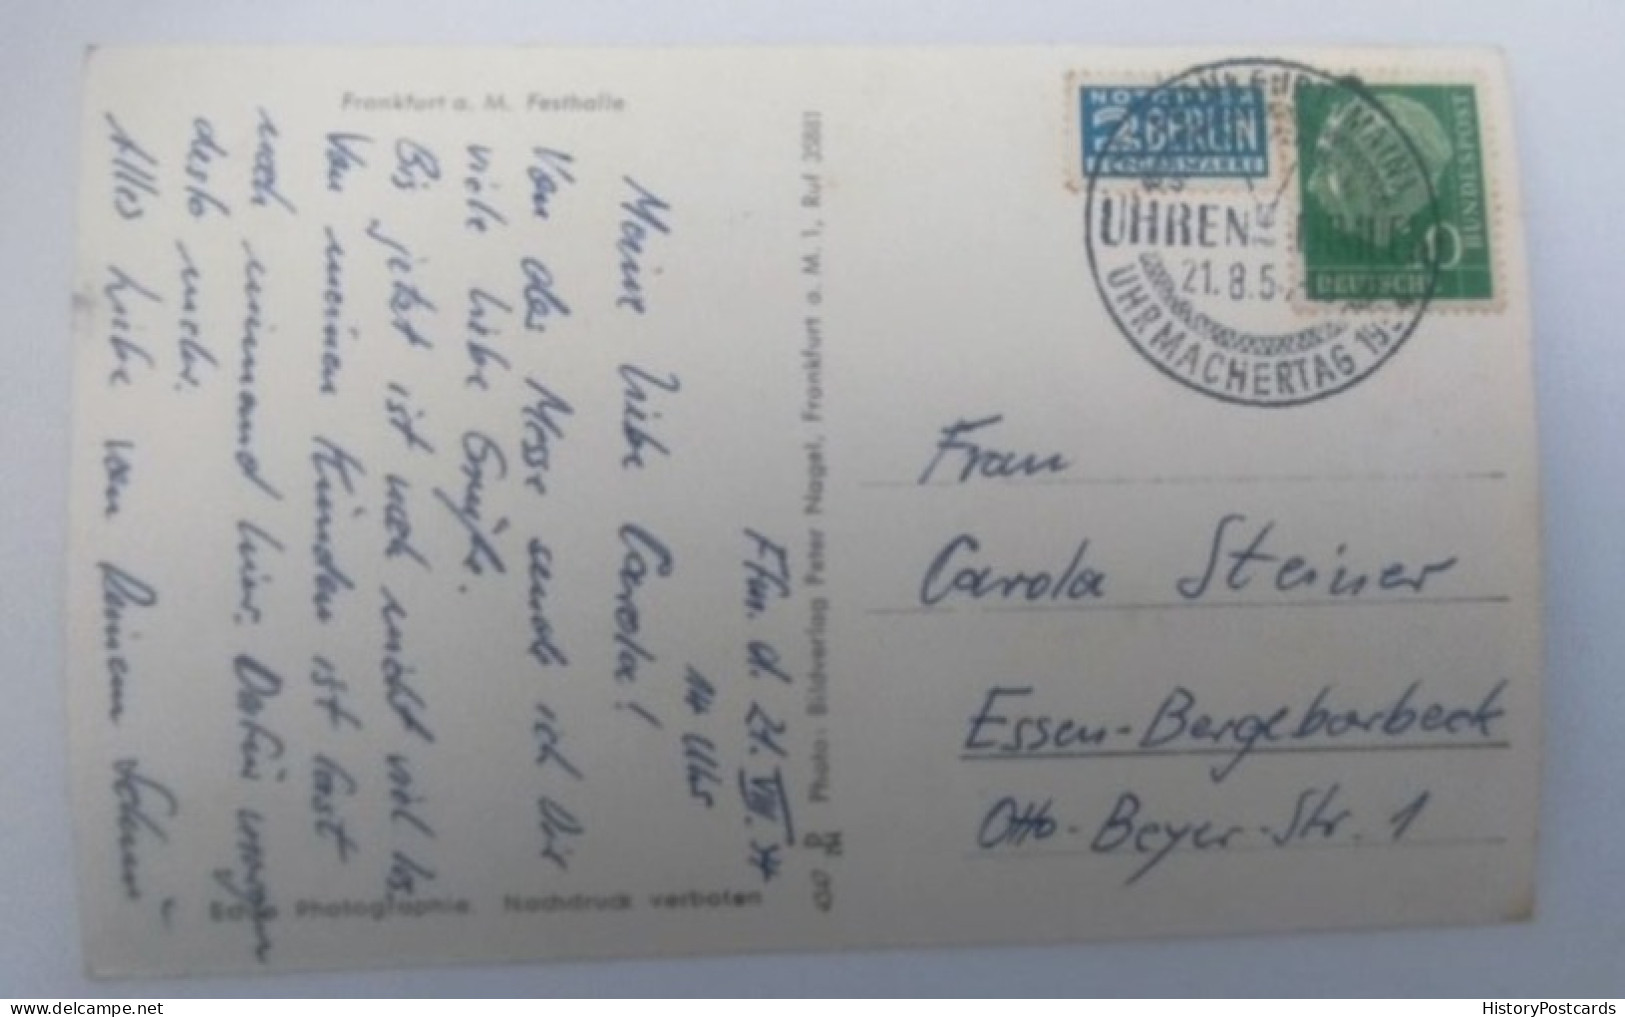 Frankfurt a. M. Festhalle
Ffm. d. 21. VIII. 54
14 Uhr
Meine liebe Carola!
Von der Messe sende ich Dir
viele liebe Grüße.
Bis jetzt ist noch nicht viel los.
Von meinen Kunden ist fast
noch niemand hier. Dafür morgen
desto mehr.
Alles Liebe von Deinem
Echte Photographie. Nachdruck verboten
4547
Photo: Bildverlag Peter Nagel, Frankfurt a. M. 1, Ruf 35881
NOTOPFER
2 BERLIN
STEUERMARKE
MAIN
UHREN
21.8.5
UHRMACHERTAG 19
10
DEUTSCHE
BUNDESPOST
Frau
Carola Steiner
Essen-Bergeborbeck
Otto-Beyer-Str. 1
HistoryPostcards